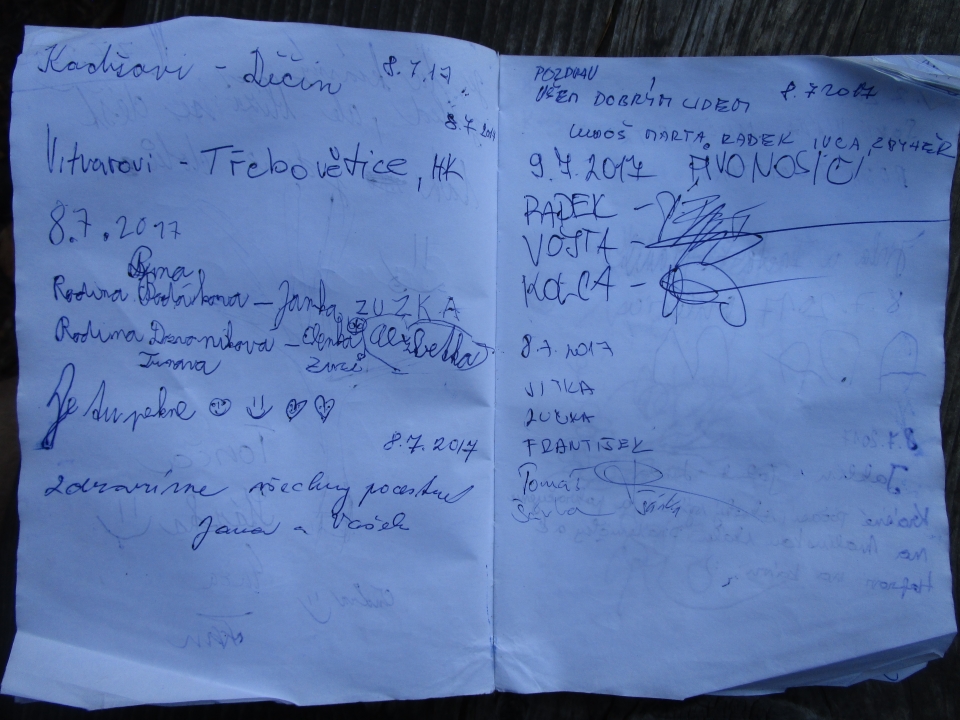 Kadlčavi - Děčín 8.7.17
8.7.2017
Vitvarovi - Třebovětice, HK
8.7.2017
Rodina - Janka, ZUZKA
Rodina - Lenka, Alžbetka
Zuzi
Je tu pekne
8.7.2017
Zdravíme všechny pocestné
Jana a Vašek
POZDRAV
VŠEM DOBRÝM LIDEM 8.7.2017
LUBOŠ MARTA, RADEK, LUCA, ZBYNĚK
9.7.2017 AVONOSIČI
RADEK -
VOJTA -
KOLCA -
8.7.2017
JITKA
LUCKA
FRANTIŠEK
Tomáš